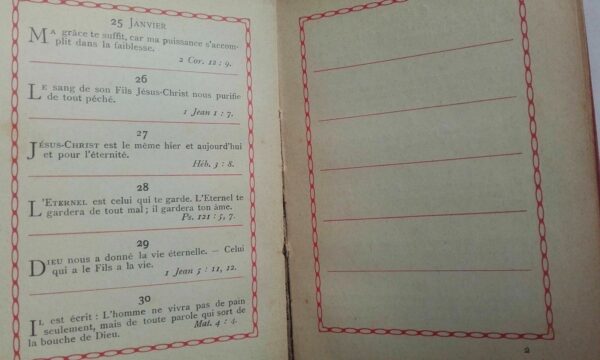 25 JANVIER
MA grâce te suffit, car ma puissance s'accom-
plit dans la faiblesse.
2 Cor. 12 : 9.
26
LE sang de son Fils Jésus-Christ nous purifie
de tout péché.
1 Jean 1 : 7.
27
JÉSUS-CHRIST est le même hier et aujourd'hui
et pour l'éternité.
Héb. 3 : 8.
28
L'ETERNEL est celui qui te garde. L'Eternel te
gardera de tout mal ; il gardera ton âme.
Ps. 121 : 5, 7.
29
DIEU nous a donné la vie éternelle. — Celui
qui a le Fils a la vie.
1 Jean 5 : 11, 12.
30
IL est écrit : L'homme ne vivra pas de pain
seulement, mais de toute parole qui sort de
la bouche de Dieu.
Mat. 4 : 4.
2